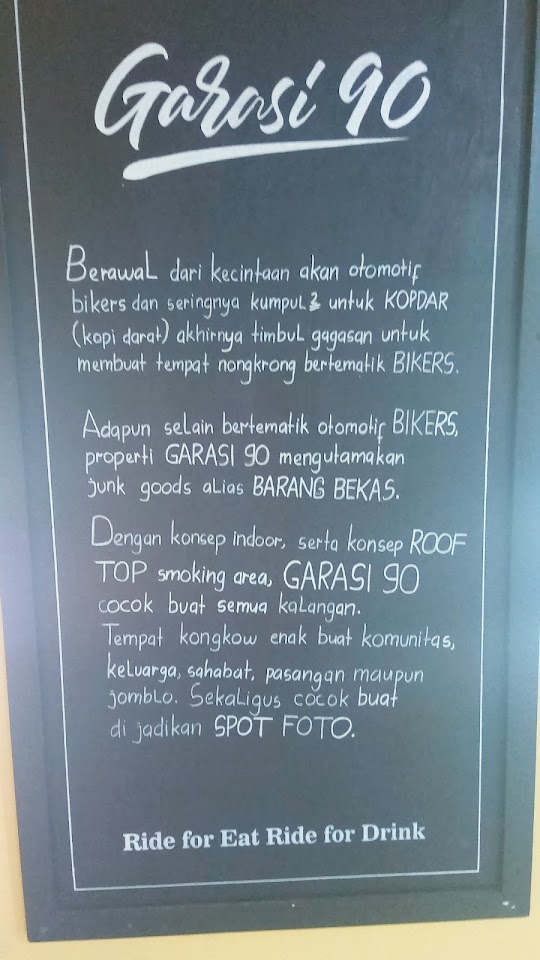 Garasi 90
Berawal dari kecintaan akan otomotif
bikers dan seringnya kumpul2 untuk KOPDAR
(kopi darat) akhirnya timbul gagasan untuk
membuat tempat nongkrong bertematik BIKERS.
Adapun selain bertematik otomotif BIKERS,
properti GARASI 90 mengutamakan
junk goods alias BARANG BEKAS.
Dengan konsep indoor, serta konsep ROOF
TOP smoking area, GARASI 90
cocok buat semua kalangan.
Tempat kongkow enak buat komunitas,
keluarga, sahabat, pasangan maupun
jomblo. Sekaligus cocok buat
di jadikan SPOT FOTO.
Ride for Eat Ride for Drink